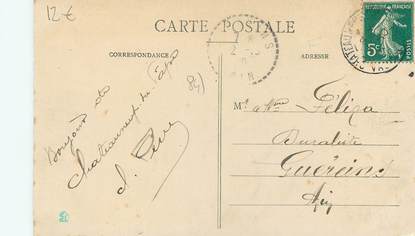 12 €
CARTE POSTALE
CORRESPONDANCE
ADRESSE
REPUBLIQUE FRANÇAISE
5c
POSTES
84)
Bonjour de
Chateauneuf du Pape
Mr & Mme Feliza
Buraliste
Guéreins
Ain